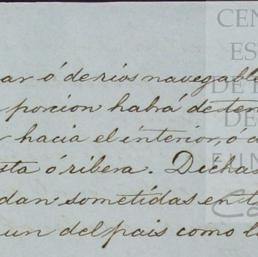 CEN
ar ó de rios navegabl
ES
porcion habrá de ten
DE
hacia el interior, ó a
DE
sta ó ribera. Dichas
dan sometidas en t
un del pais como l